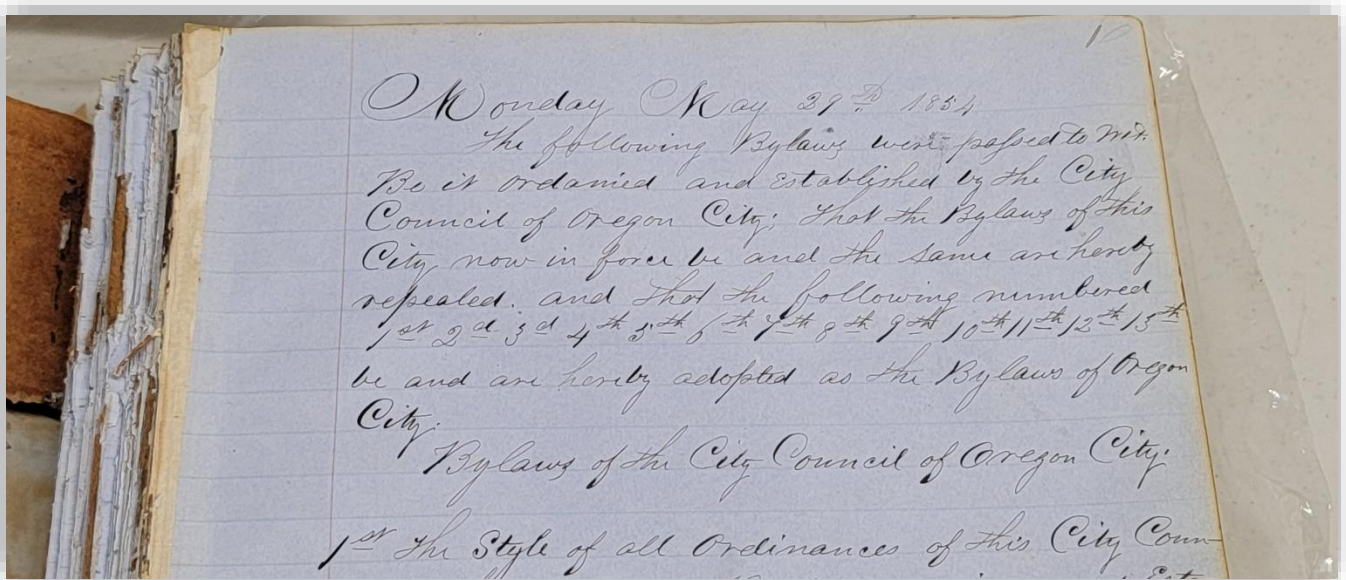 Monday May 29th 1854
The following Bylaws were passed to wit.
Be it ordained and established by the City
Council of Oregon City; That the Bylaws of this
City now in force be and the same are hereby
repealed. and that the following numbered
1st 2d 3d 4th 5th 6th 7th 8th 9th 10th 11th 12th 13th
be and are hereby adopted as the Bylaws of Oregon
City.
Bylaws of the City Council of Oregon City.
1st The Style of all Ordinances of this City Coun-